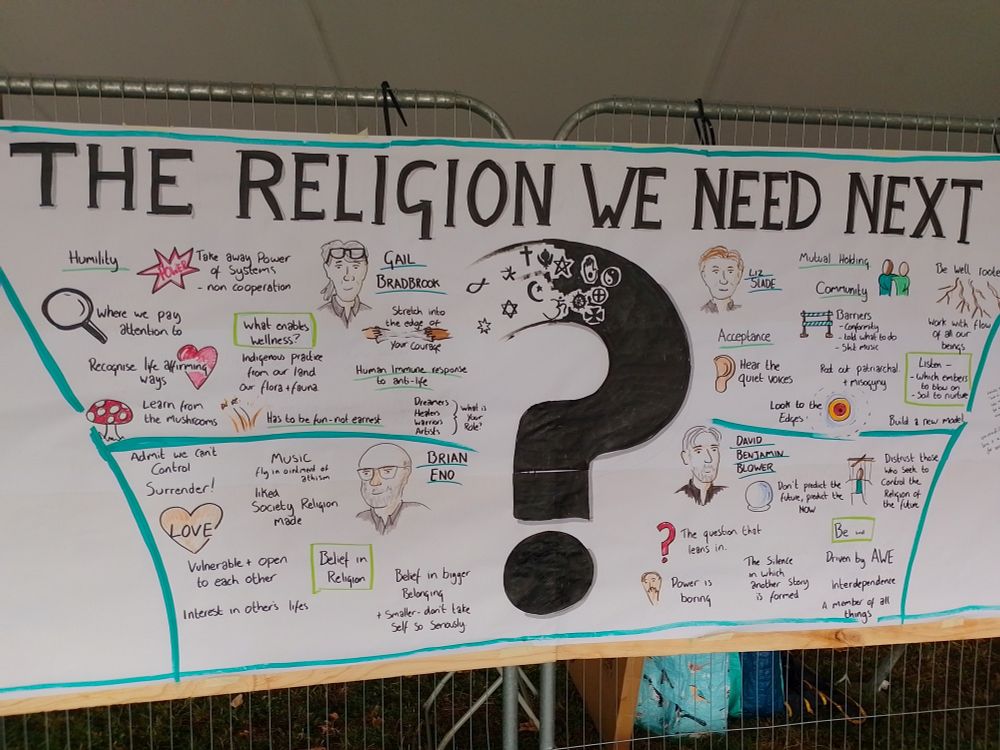 THE RELIGION WE NEED NEXT
Humility
POWER
Take away Power
of Systems
- non cooperation
GAIL
BRADBROOK
Where we pay
attention to
What enables
wellness?
Stretch into
the edge of
your courage
Recognise life affirming
ways
Indigenous practice
from our land
our flora + fauna
Human Immune response
to anti-life
Learn from
the mushrooms
Has to be fun - not earnest
Dreamers
Healers
Warriors
Artists
What is
your
Role?
Admit we can't
Control
Surrender!
MUSIC
fly in ointment of
athism
liked
Society Religion
made
BRIAN
ENO
LOVE
Vulnerable + open
to each other
Belief in
Religion
Interest in other's lifes
Belief in bigger
Belonging
+ Smaller - don't take
self so seriously
LIZ
SLADE
Mutual Holding
Community
Be well roote
Acceptance
Barriers
- conformity
- told what to do
- Shit music
Work with flow
of all our
beings
Hear the
quiet voices
Root out patriarchal
+ misogyny
Listen -
- which embers
to blow on
- Soil to nurture
Look to the
Edges
Build a new model
DAVID
BENJAMIN
BLOWER
Don't predict the
future, predict the
NOW
Distrust those
who seek to
Control the
Religion of
the future
?
The question that
leans in.
Be
Power is
boring
The Silence
in which
another Story
is formed
Driven by AWE
Interdependence
A member of all
things